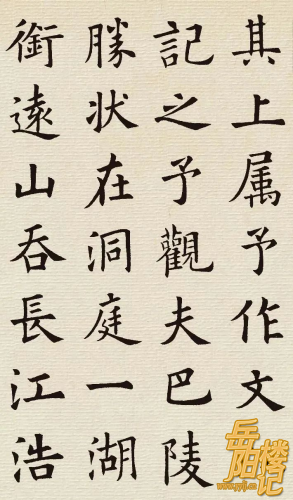 其上属予作文
記之予觀夫巴陵
勝狀在洞庭一湖
銜遠山吞長江浩
岳阳楼记